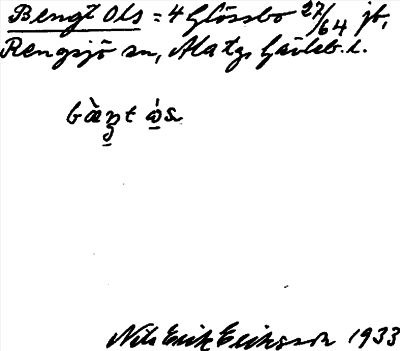 Bengt Ols = 4 Glössbo 27/64 jb,
Rengsjö sn, Ala tg, Gävleb. l.
Nils Erik Eriksson 1933